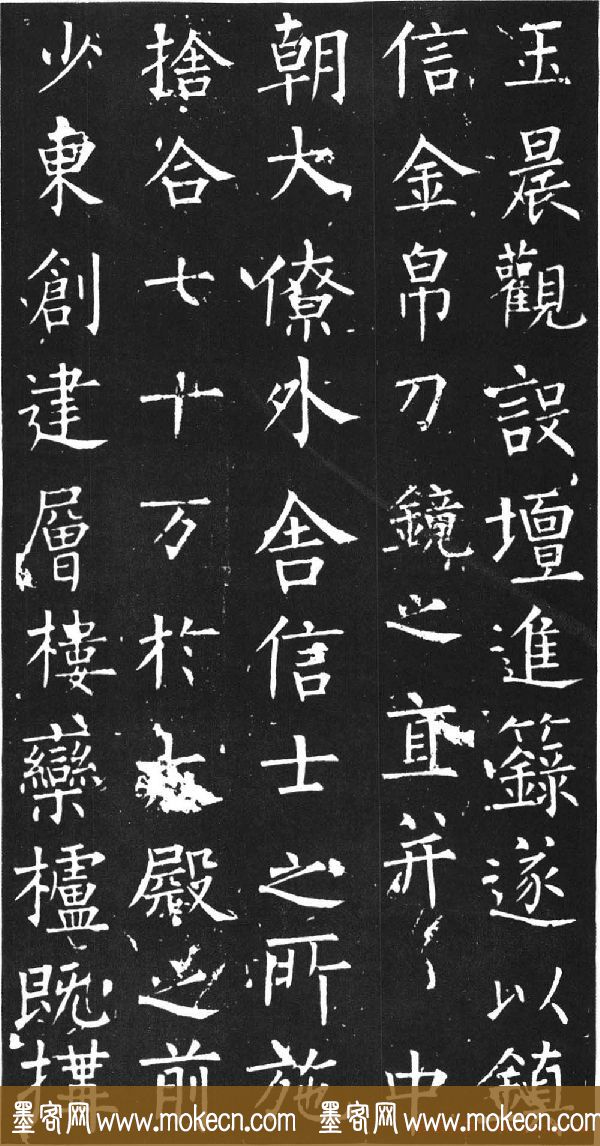 玉晨觀設壇進籙遂以鎮
信金帛刀鏡之直并中
朝大僚外舍信士之所施
捨合七十万於大殿之前
少東創建層樓欒櫨既構
墨客网 www.mokecn.com 墨客网 www.mokecn.com